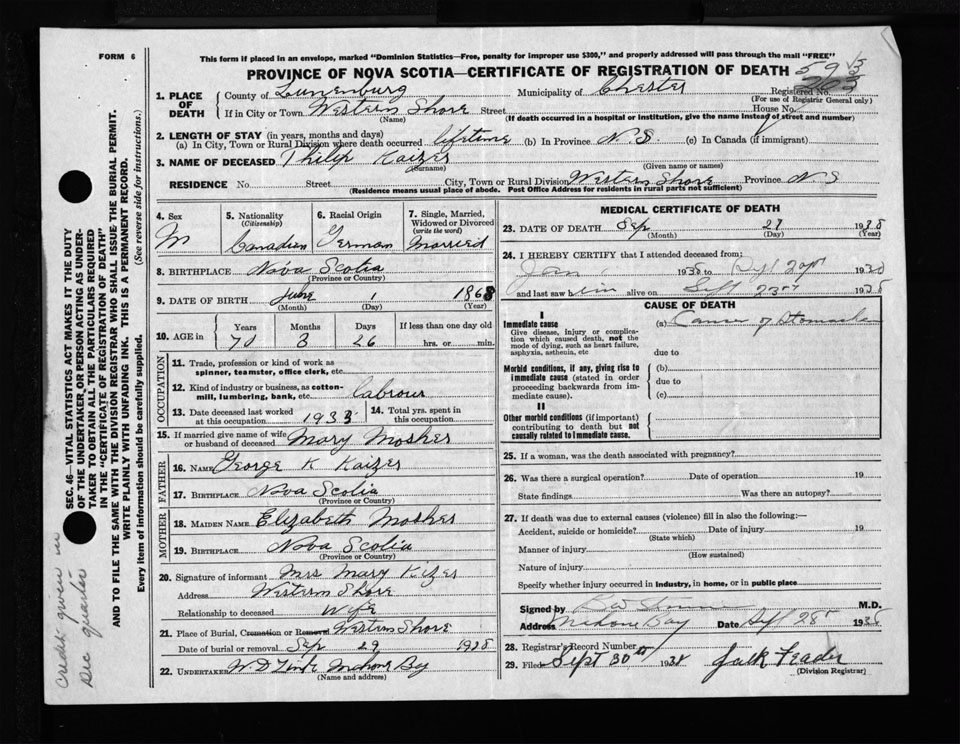 FORM 6
This form if placed in an envelope, marked "Dominion Statistics—Free, penalty for improper use $300," and properly addressed will pass through the mail "FREE"
PROVINCE OF NOVA SCOTIA—CERTIFICATE OF REGISTRATION OF DEATH
1. PLACE OF DEATH
County of Lunenburg Municipality of Chester Registered No.
(For use of Registrar General only)
If in City or Town Western Shore Street House No.
(Name) (If death occurred in a hospital or institution, give the name instead of street and number)
2. LENGTH OF STAY (in years, months and days)
(a) In City, Town or Rural Division where death occurred lifetime (b) In Province N.S (c) In Canada (if immigrant)
3. NAME OF DECEASED Philip Kaizer
(Surname) (Given name or names)
RESIDENCE No. Street City, Town or Rural Division Western Shore Province N S
(Residence means usual place of abode. Post Office Address for residents in rural parts not sufficient)
4. Sex M
5. Nationality (Citizenship) Canadian
6. Racial Origin German
7. Single, Married, Widowed or Divorced (write the word) Married
8. BIRTHPLACE Nova Scotia
(Province or Country)
9. DATE OF BIRTH June 1 1868
(Month) (Day) (Year)
10. AGE in Years Months Days If less than one day old
70 3 26 hrs. or min.
OCCUPATION
11. Trade, profession or kind of work as spinner, teamster, office clerk, etc.
12. Kind of industry or business, as cotton-mill, lumbering, bank, etc. labour
13. Date deceased last worked at this occupation 1933
14. Total yrs. spent in this occupation
15. If married give name of wife or husband of deceased Mary Mosher
FATHER
16. Name George K Kaizer
17. Birthplace Nova Scotia
(Province or Country)
MOTHER
18. Maiden Name Elizabeth Mosher
19. Birthplace Nova Scotia
(Province or Country)
20. Signature of informant Mrs Mary Kizer
Address Western Shore
Relationship to deceased Wife
21. Place of Burial, Cremation or Removal Western Shore
Date of burial or removal Sep 29 1938
22. Undertaker
(Name and address)
MEDICAL CERTIFICATE OF DEATH
23. DATE OF DEATH Sep 27 1938
(Month) (Day) (Year)
24. I HEREBY CERTIFY that I attended deceased from:
Jan 1938 to Sept 1938
and last saw him alive on Sept 23rd 1938
CAUSE OF DEATH
I
Immediate cause
Give disease, injury or complication which caused death, not the mode of dying, such as heart failure, asphyxia, asthenia, etc
(a) Cancer of Stomach
due to
Morbid conditions, if any, giving rise to immediate cause (stated in order proceeding backwards from immediate cause).
(b)
due to
(c)
II
Other morbid conditions (if important) contributing to death but not causally related to immediate cause.
25. If a woman, was the death associated with pregnancy?
26. Was there a surgical operation? Date of operation 19
State findings Was there an autopsy?
27. If death was due to external causes (violence) fill in also the following:—
Accident, suicide or homicide? Date of injury 19
(State which)
Manner of injury
(How sustained)
Nature of injury
Specify whether injury occurred in industry, in home, or in public place
Signed by M.D.
Address Mahone Bay Date Sept 28th 1938
28. Registrar's Record Number
29. Filed Sept 30th 1938 Jack Feader
(Division Registrar)
SEC. 46—VITAL STATISTICS ACT MAKES IT THE DUTY
OF THE UNDERTAKER, OR PERSON ACTING AS UNDER-
TAKER TO OBTAIN ALL THE PARTICULARS REQUIRED
IN THE "CERTIFICATE OF REGISTRATION OF DEATH"
AND TO FILE THE SAME WITH THE DIVISION REGISTRAR WHO SHALL ISSUE THE BURIAL PERMIT.
WRITE PLAINLY WITH UNFADING INK. THIS IS A PERMANENT RECORD.
Every item of information should be carefully supplied. (See reverse side for instructions.)
Credit given in
Dec quarter